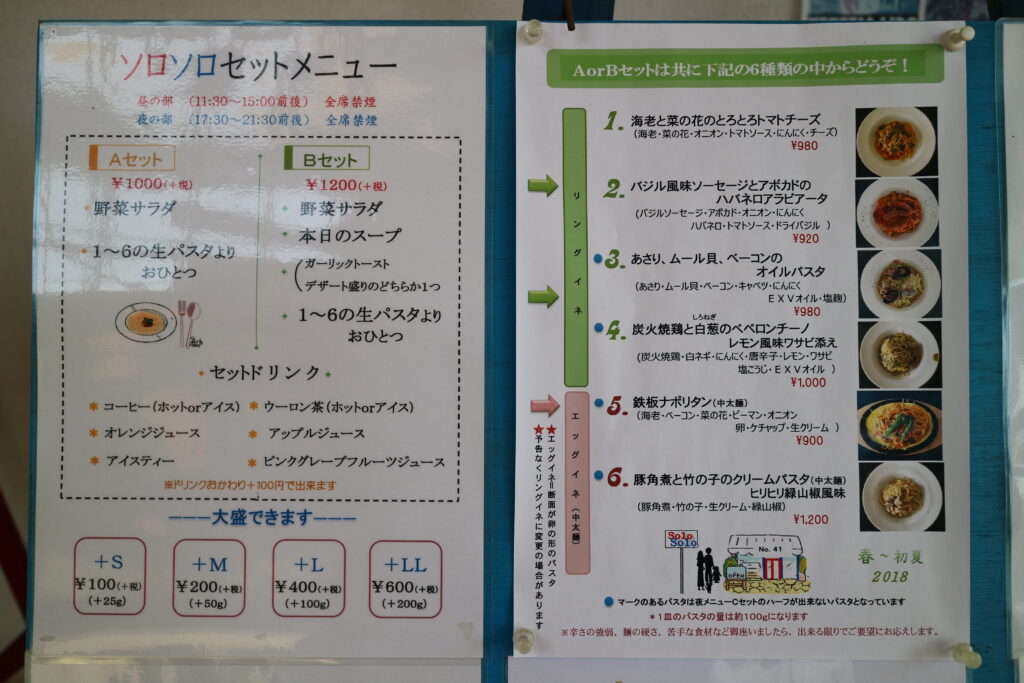 ソロソロセットメニュー
昼の部 (11:30〜15:00前後) 全席禁煙
夜の部 (17:30〜21:30前後) 全席禁煙
Aセット
￥1000(+税)
野菜サラダ
1〜6の生パスタより
おひとつ
Bセット
￥1200(+税)
野菜サラダ
本日のスープ
ガーリックトースト
デザート盛りのどちらか1つ
1〜6の生パスタより
おひとつ
・セットドリンク・
＊コーヒー(ホットorアイス)
＊ウーロン茶(ホットorアイス)
＊オレンジジュース
＊アップルジュース
＊アイスティー
＊ピンクグレープフルーツジュース
※ドリンクおかわり+100円で出来ます
―――大盛できます―――
+S
￥100(+税)
(+25g)
+M
￥200(+税)
(+50g)
+L
￥400(+税)
(+100g)
+LL
￥600(+税)
(+200g)
AorBセットは共に下記の6種類の中からどうぞ！
リングイネ
1. 海老と菜の花のとろとろトマトチーズ
(海老・菜の花・オニオン・トマトソース・にんにく・チーズ)
¥980
2. バジル風味ソーセージとアボカドの
ハバネロアラビアータ
(バジルソーセージ・アボカド・オニオン・にんにく
ハバネロ・トマトソース・ドライバジル )
¥920
3. あさり、ムール貝、ベーコンの
オイルパスタ
(あさり・ムール貝・ベーコン・キャベツ・にんにく
EXVオイル・塩麹)
¥980
しろねぎ
4. 炭火焼鶏と白葱のペペロンチーノ
レモン風味ワサビ添え
(炭火焼鶏・白ネギ・にんにく・唐辛子・レモン・ワサビ
塩こうじ・EXVオイル )
¥1,000
エッグイネ(中太麺)
5. 鉄板ナポリタン(中太麺)
(海老・ベーコン・菜の花・ピーマン・オニオン
卵・ケチャップ・生クリーム )
¥900
6. 豚角煮と竹の子のクリームパスタ(中太麺)
ヒリヒリ緑山椒風味
(豚角煮・竹の子・生クリーム・緑山椒)
¥1,200
★エッグイネ＝断面が卵の形のパスタ
★予告なくリングイネに変更の場合があります
Solo
Solo
No. 41
OPEN
春〜初夏
2018
マークのあるパスタは夜メニューCセットのハーフが出来ないパスタとなっています
＊1皿のパスタの量は約100gになります
※辛さの強弱、麺の硬さ、苦手な食材など御座いましたら、出来る限りでご要望にお応えします。